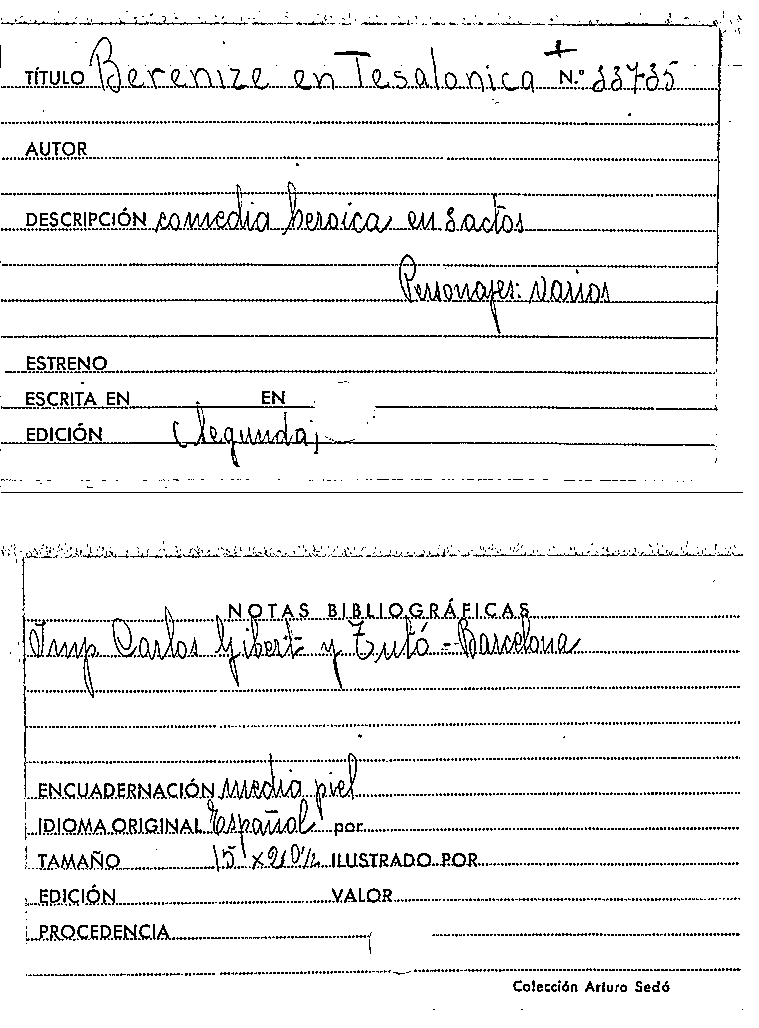 TÍTULO Berenize en Tesalonica + N.º 33735
AUTOR
DESCRIPCIÓN comedia heroica en 3 actos
Personajes: varios
ESTRENO
ESCRITA EN EN
EDICIÓN (segunda)
NOTAS BIBLIOGRÁFICAS
Imp Carlos Gibert y Tutó - Barcelona
ENCUADERNACIÓN media piel
IDIOMA ORIGINAL Español por
TAMAÑO 15 x 20½ ILUSTRADO POR
EDICIÓN VALOR
PROCEDENCIA
Colección Arturo Sedó